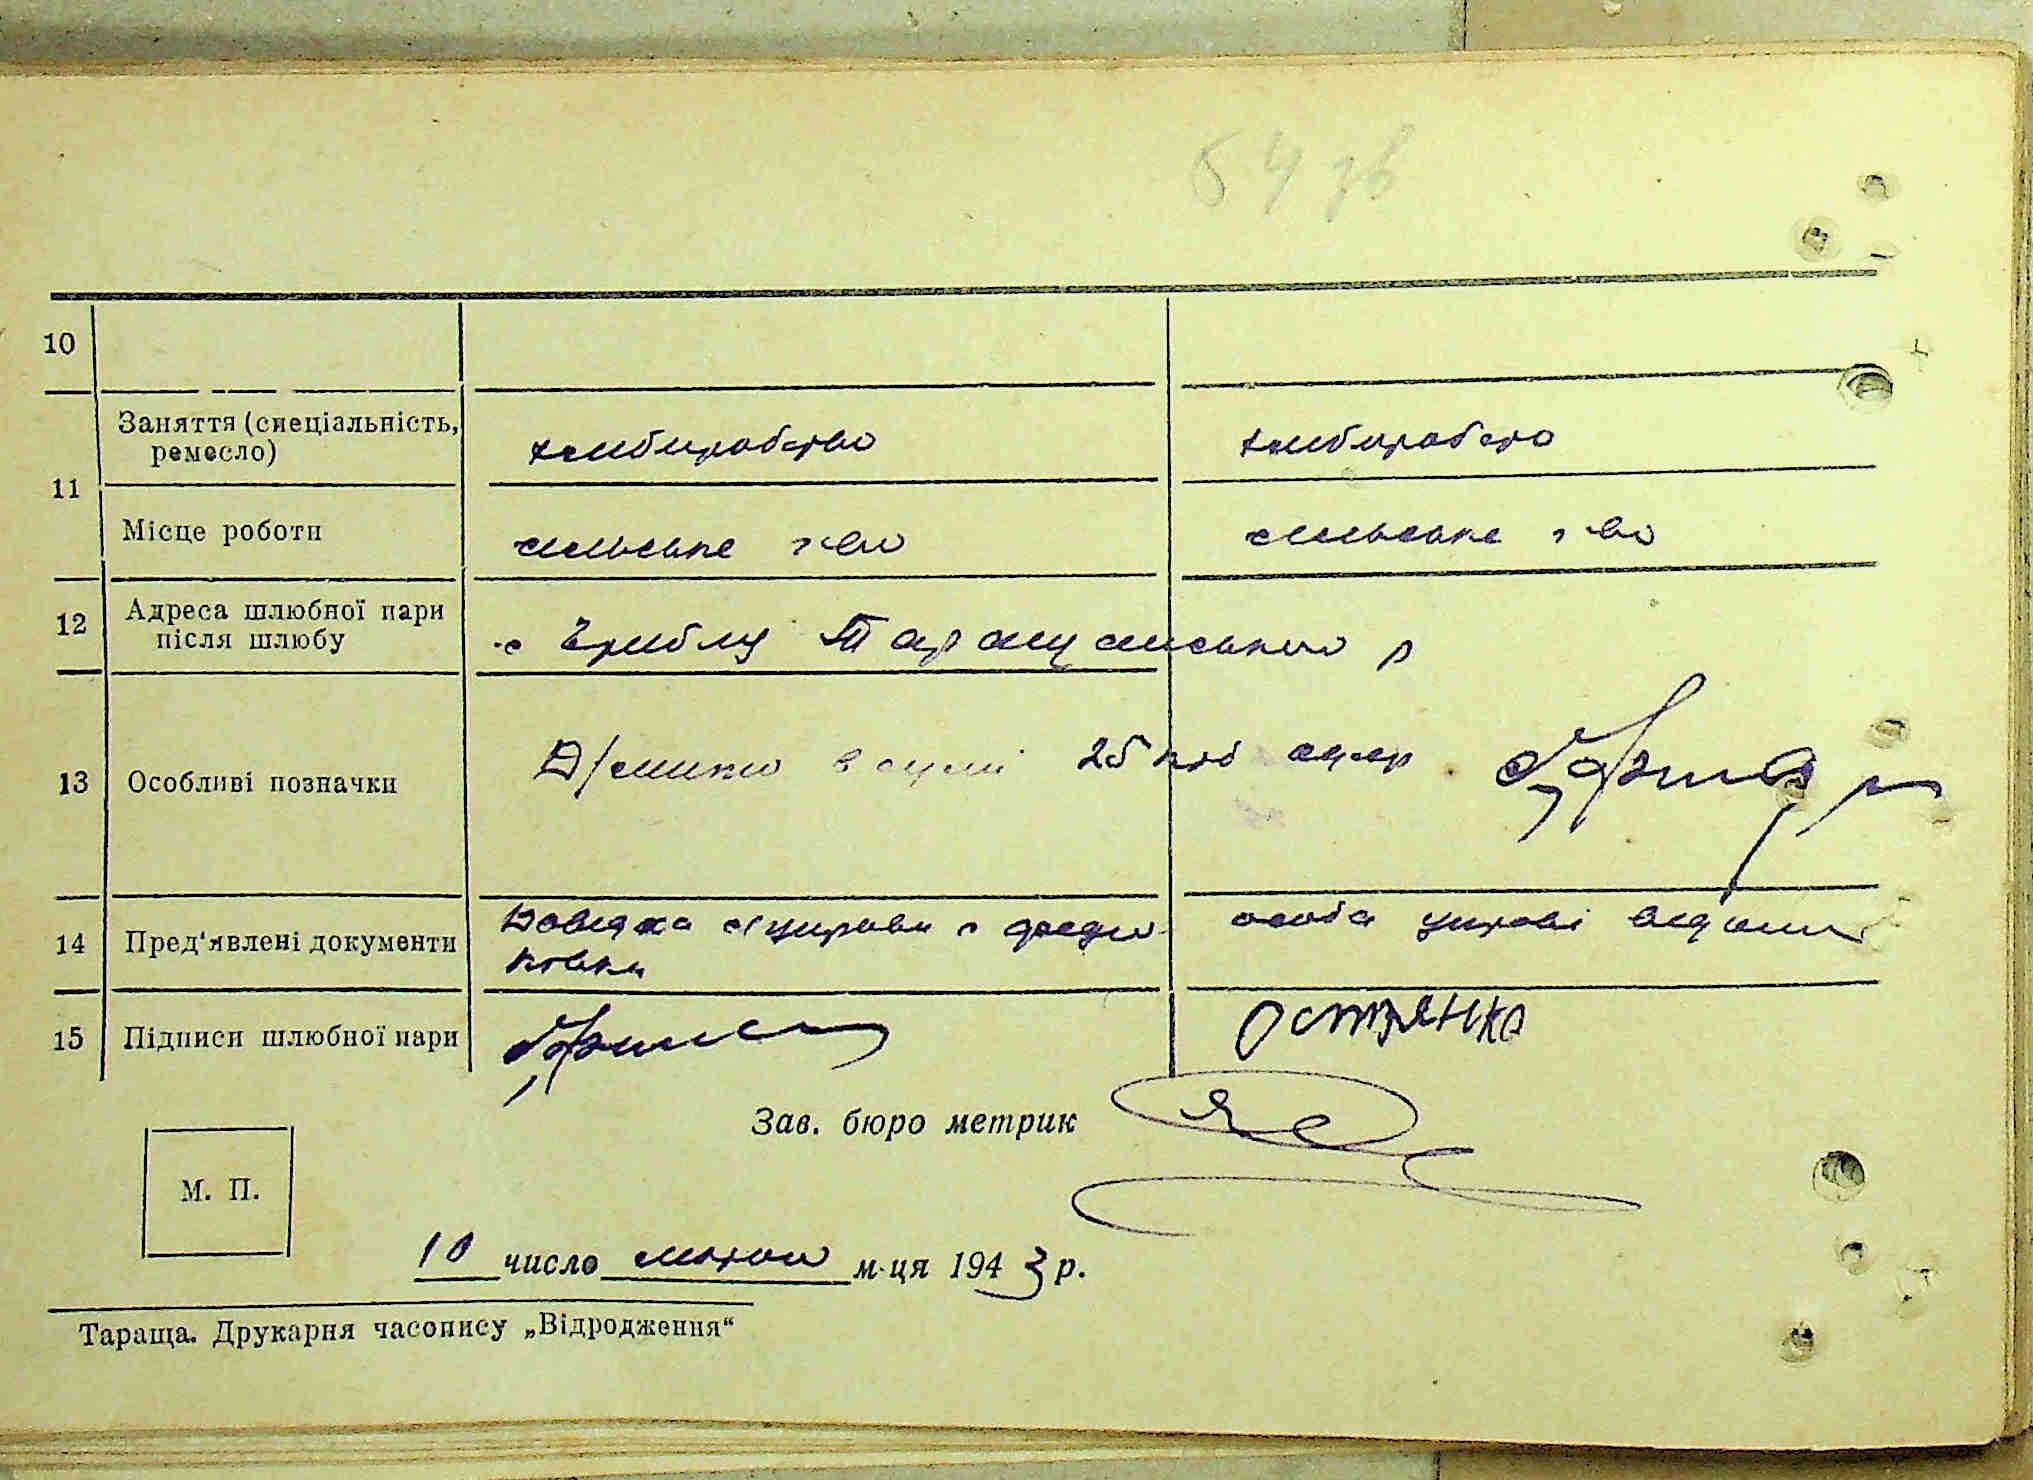 54 зв
10
Заняття (спеціальність, ремесло) хліборобство хлібороборство
11
Місце роботи сільське г-во сільське г-во
12 Адреса шлюбної пари після шлюбу с Таращанського р
13 Особливі позначки Д/мито в сумі 25 крб
14 Пред'явлені документи Довідка с/управи особа управі відома
15 Підписи шлюбної пари Остряніко
Зав. бюро метрик
М. П.
10 число м-ця 1943 р.
Тараща. Друкарня часопису „Відродження“